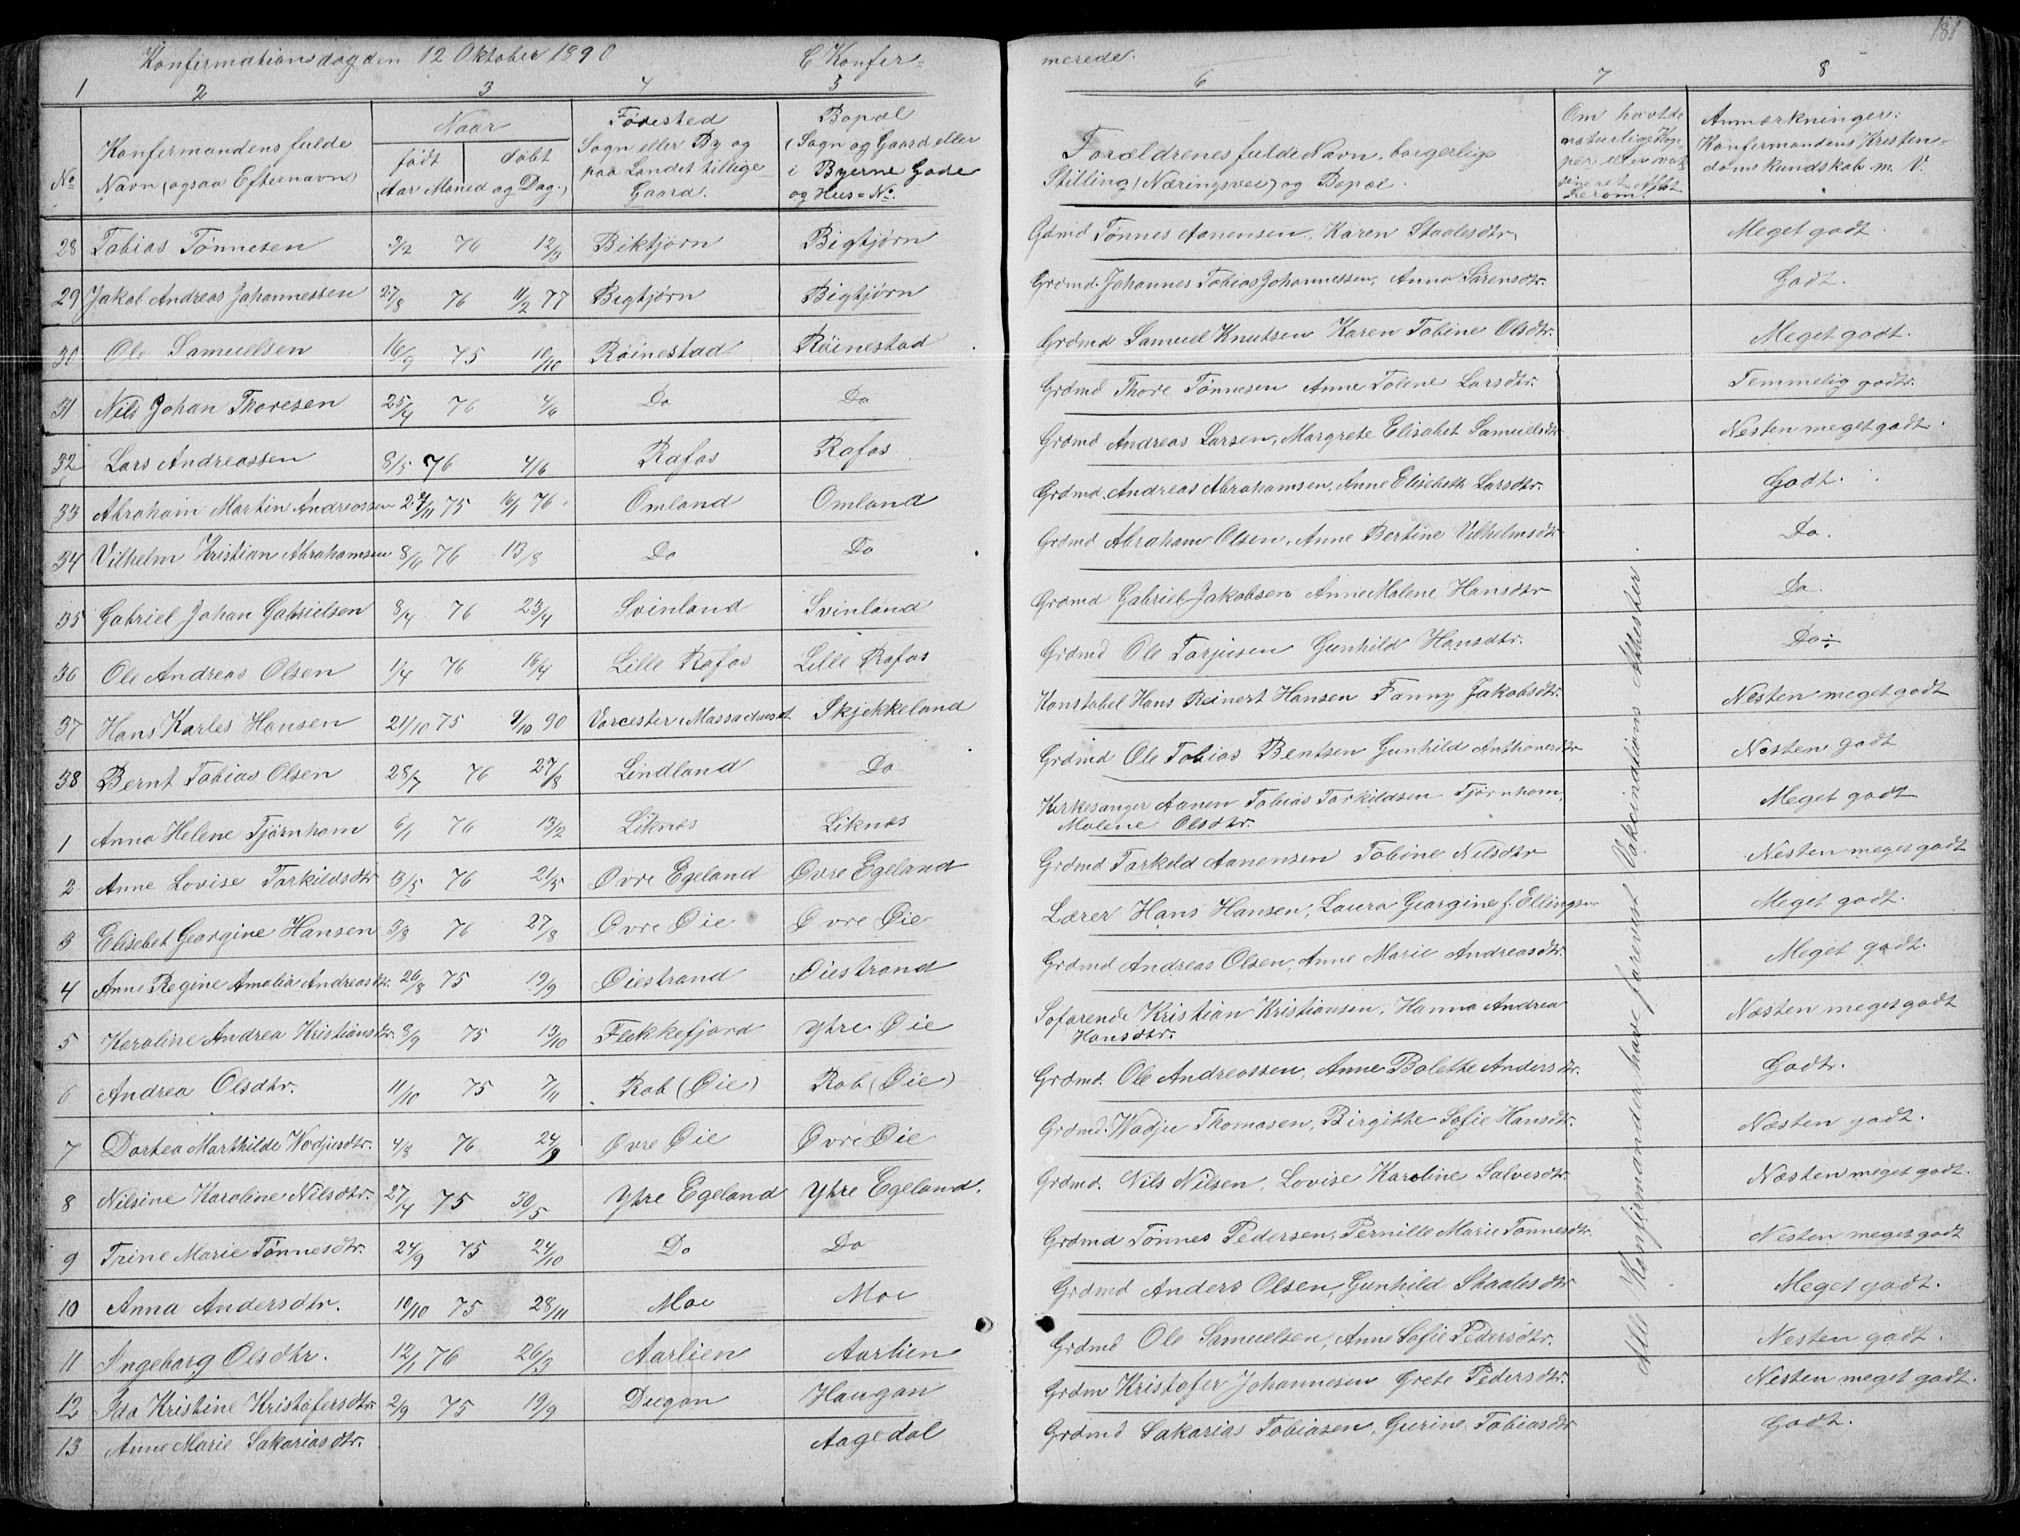 181
Konfirmationsdag den 12 Oktober 1890 C Konfir=
merede.
1 2 3 4 5
6 7 8
No Konfirmandens fulde Navn (ogsaa Efternavn)
Naar
født døbt
(Aar Maned og Dag.)
Fødested
Sogn eller By og
paa Landet tillige
Gaard.
Bopæl
(Sogn og Gaard eller
i Byerne Gade
og Hus=No.
Forældrenes fulde Navn, borgerlige
Stilling (Næringsvei) og Bopæl.
Om havt de
naturlige Kop=
per
Anmærkninger:
Konfirmandens Kristen=
domskundskab m. V.
28 Tobias Tønnesen 3/2 76 12/3 Biktjørn Bigtjørn Grdmd Tønnes Aanensen, Karen Staalesdtr Meget godt.
29 Jakob Andreas Johannessen 27/8 76 11/2 77 Bigtjørn Bigtjørn Grdmd. Johannes Tobias Johannessen, Anna Sørensdtr. Godt.
30 Ole Samuelsen 16/9 75 10/10 Røinestad Røinestad Grdmd Samuel Knutsen Karen Tobine Olsdtr. Meget godt.
31 Nils Johan Thoresen 25/4 76 4/6 Do Do Grdmd Thore Tønnesen Anne Tolene Larsdtr. Temmelig godt.
32 Lars Andreassen 8/5 76 4/6 Rafos Rafos Grdmd Andreas Larsen, Margrete Elisabet Samuelsdtr Nesten meget godt.
33 Abraham Martin Andreassen 27/11 75 16/1 76 Omland Omland Grdmd. Andreas Abrahamsen, Anne Elisabeth Larsdtr. Godt.
34 Vilhelm Kristian Abrahamsen 8/6 76 13/8 Do Do Grdmd Abraham Olsen, Anne Bertine Vilhelmsdtr Do.
35 Gabriel Johan Gabrielsen 8/4 76 23/4 Svinland Svinland Grdmd Gabriel Jakobsen Anne Malene Hansdtr Do.
36 Ole Andreas Olsen 1/4 76 16/4 Lille Rafos Lille Rafos Grdmd Ole Tarjusen Gunhild Hansdtr. Do ÷
37 Hans Karles Hansen 21/10 75 9/10 90 Vorcester, Massachuset Skjekkeland Konstabel Hans Reinert Hansen Fanny Jakobsdtr. Nesten meget godt
38 Bernt Tobias Olsen 28/7 76 27/8 Lindland Do Grdmd Ole Tobias Bentsen Gunhild Anthonesdtr Nesten godt
1 Anna Helene Tjørnhom 6/1 76 13/2 Liknes Liknes Kirkesanger Aanen Tobias Torkildsen Tjørnhom,
Malene Olsdtr. Meget godt
2 Anne Lovise Torkildsdtr 3/5 76 21/5 Øvre Egeland Øvre Egeland Grdmd Torkild Aanensen Tobine Nilsdtr Nesten meget godt
3 Elisebet Georgine Hansen 3/8 76 27/8 Øvre Øie Øvre Øie Lærer Hans Hansen, Laura Georgine f. Ellingsen Meget godt.
4 Anne Regine Amalia Andreasdtr. 26/8 75 19/9 Øiestrand Øiestrand Grdmd Andreas Olsen, Anne Marie Andreasdtr. Meget godt.
5 Karoline Andrea Kristiansdtr. 8/9 75 13/10 Flekkefjord Ytre Øie Søfarende Kristian Kristiansen, Hanna Andrea
Hansdtr. Næsten meget godt
6 Andrea Olsdtr. 11/10 75 7/11 Rob (Øie) Rob (Øie) Grdmd. Ole Andreassen, Anne Bolette Andersdtr. Godt.
7 Dortea Marthilde Wodjusdtr. 4/8 76 24/9 Øvre Øie Øvre Øie Grdmd. Wodju Thomasen, Birgithe Sofie Hansdtr. Næsten godt.
8 Nilsine Karoline Nilsdtr. 27/4 75 30/5 Ytre Egeland Ytre Egeland. Grdmd. Nils Nilsen, Lovise Karoline Salvesdtr. Næsten meget godt.
9 Trine Marie Tønnesdtr. 24/9 75 24/10 Do Do Grdmd Tønnes Pedersen, Pernille Marie Tønnesdtr. Nesten meget godt
10 Anna Andersdtr. 10/10 75 28/11 Moe Moe Grdmd Anders Olsen, Gunhild Staalesdtr Meget godt.
11 Ingeborg Olsdtr. 12/1 76 26/3 Aarlien Aarlien Grdmd Ole Samuelsen, Anne Sofie Pedersdtr. Nesten godt.
12 Ida Kristine Kristofersdtr. 2/9 75 19/9 Dugan Haugan Grdm Kristofer Johannesen Grete Pedersdtr. Nesten meget godt.
13 Anne Marie Sakariasdtr. Aagedal Grdmd Sakarias Tobiasen, Gurine Tobiasdtr Godt.
Alle Konfirmander have forevist Vakcinations Attester.